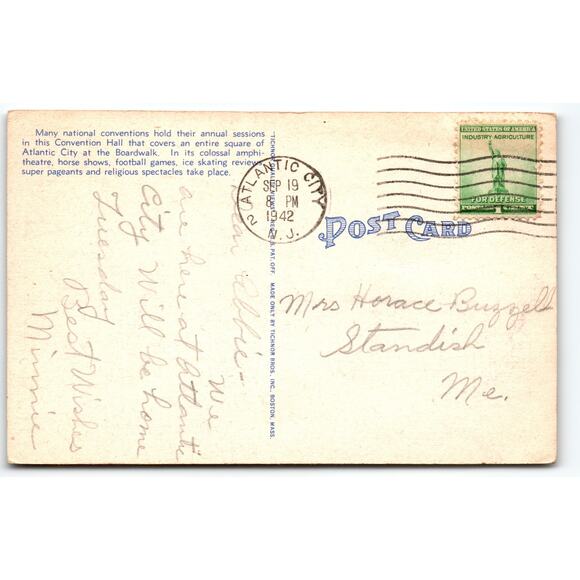 Many national conventions hold their annual sessions
in this Convention Hall that covers an entire square of
Atlantic City at the Boardwalk. In its colossal amphi-
theatre, horse shows, football games, ice skating reviews,
super pageants and religious spectacles take place.
Dear Abbie-
We
are here at Atlantic
City Will be home
Tuesday
Best Wishes
Minnie
MADE ONLY BY TICHNOR BROS., INC., BOSTON, MASS.
ATLANTIC CITY
2
SEP 19
8 PM
1942
N.J.
POST CARD
UNITED STATES OF AMERICA
INDUSTRY-AGRICULTURE
FOR DEFENSE
1
Mrs Horace Buzzell
Standish
Me.